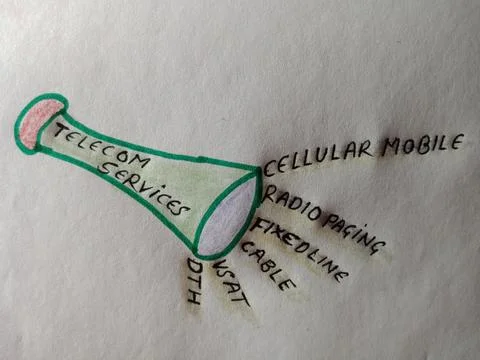 TELECOM
SERVICES
CELLULAR MOBILE
RADIO PAGING
FIXEDLINE
CABLE
VSAT
DTH